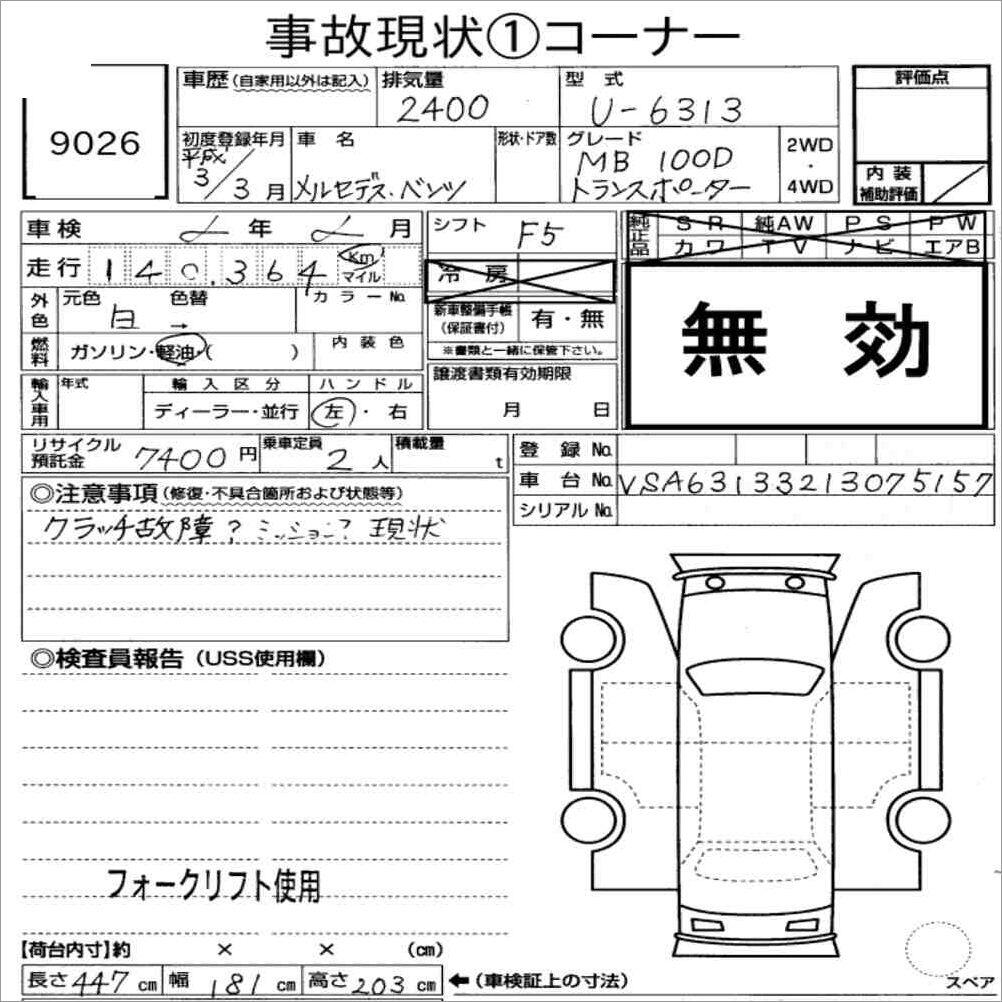 事故現状①コーナー
9026
車歴(自家用以外は記入)
排気量
2400
型 式
U-6313
評価点
初度登録年月
平成
3/3月
車 名
メルセデス・ベンツ
形状・ドア数
グレード
MB 100D
トランスポーター
2WD
・
4WD
内 装
補助評価
車検 年 月
シフト
F5
純正品
SR 純AW PS PW
カワ TV ナビ エアB
走行 140,364
Km
マイル
冷 房
外色
元色 色替
白 →
カラーNo.
新車整備手帳
(保証書付)
有・無
※書類と一緒に保管下さい。
無 効
燃料
ガソリン・軽油・( )
内 装 色
輸入車用
年式
輸 入 区 分
ハ ン ド ル
ディーラー・並行
左 ・ 右
譲渡書類有効期限
月 日
リサイクル
預託金
7400円
乗車定員
2人
積載量
t
登 録 No.
車 台 No. VSA63133213075157
シリアル No.
◎注意事項(修復・不具合箇所および状態等)
クラッチ故障? ミッション? 現状
◎検査員報告(USS使用欄)
フォークリフト使用
【荷台内寸】約 × × (cm)
長さ447cm 幅181cm 高さ203cm ←(車検証上の寸法)
スペア